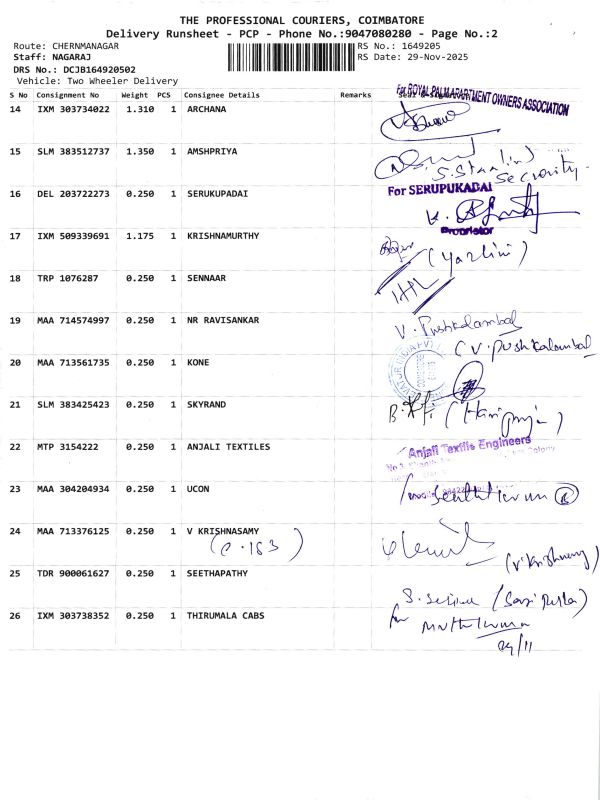 THE PROFESSIONAL COURIERS, COIMBATORE
Delivery Runsheet - PCP - Phone No.:9047080280 - Page No.:2
Route: CHERNMANAGAR RS No.: 1649205
Staff: NAGARAJ RS Date: 29-Nov-2025
DRS No.: DCJB164920502
Vehicle: Two Wheeler Delivery
S No Consignment No Weight PCS Consignee Details Remarks
For ROYAL PALM APARTMENT OWNERS ASSOCIATION
14 IXM 303734022 1.310 1 ARCHANA
15 SLM 383512737 1.350 1 AMSHPRIYA
S. Stalin
Security
16 DEL 203722273 0.250 1 SERUKUPADAI
For SERUPUKADAI
Proprietor
17 IXM 509339691 1.175 1 KRISHNAMURTHY
(Yazlini)
18 TRP 1076287 0.250 1 SENNAAR
19 MAA 714574997 0.250 1 NR RAVISANKAR
V. Pushkalambal
(V. Pushkalambal
20 MAA 713561735 0.250 1 KONE
21 SLM 383425423 0.250 1 SKYRAND
22 MTP 3154222 0.250 1 ANJALI TEXTILES
Anjali Textile Engineers
Colony
23 MAA 304204934 0.250 1 UCON
24 MAA 713376125 0.250 1 V KRISHNASAMY
(C.163)
25 TDR 900061627 0.250 1 SEETHAPATHY
26 IXM 303738352 0.250 1 THIRUMALA CABS
for
29/11